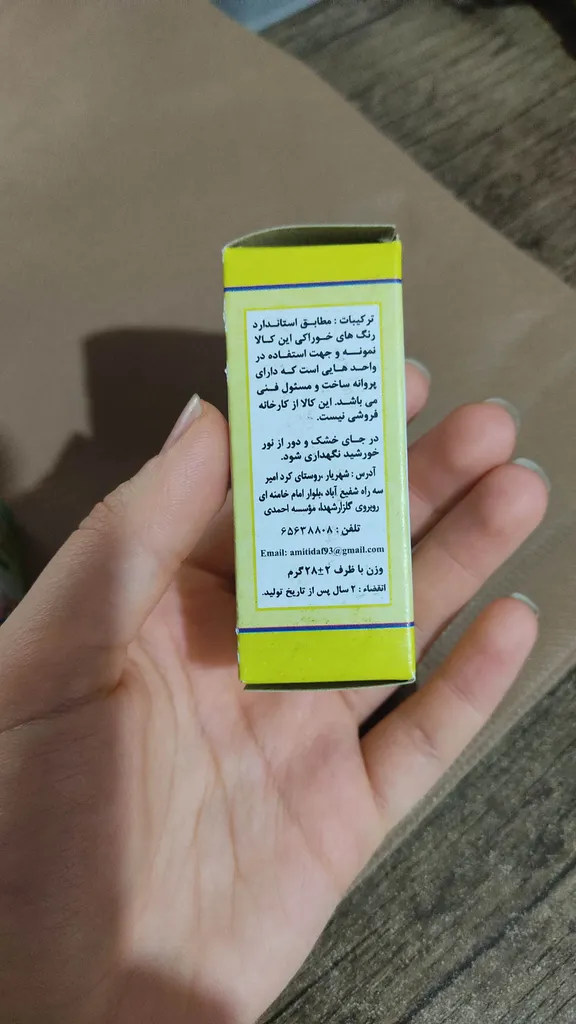 ترکیبات : مطابق استاندارد
رنگ های خوراکی این کالا
نمونه و جهت استفاده در
واحد هایی است که دارای
پروانه ساخت و مسئول فنی
می باشد. این کالا از کارخانه
فروشی نیست.
در جای خشک و دور از نور
خورشید نگهداری شود.
آدرس : شهریار ،روستای کرد امیر
سه راه شفیع آباد ،بلوار امام خامنه ای
روبروی گلزارشهدا، مؤسسه احمدی
تلفن : ۶۵۶۳۸۸۰۸
Email: amitidaf93@gmail.com
وزن با ظرف ۲±۲۸گرم
انقضاء : ۲ سال پس از تاریخ تولید.